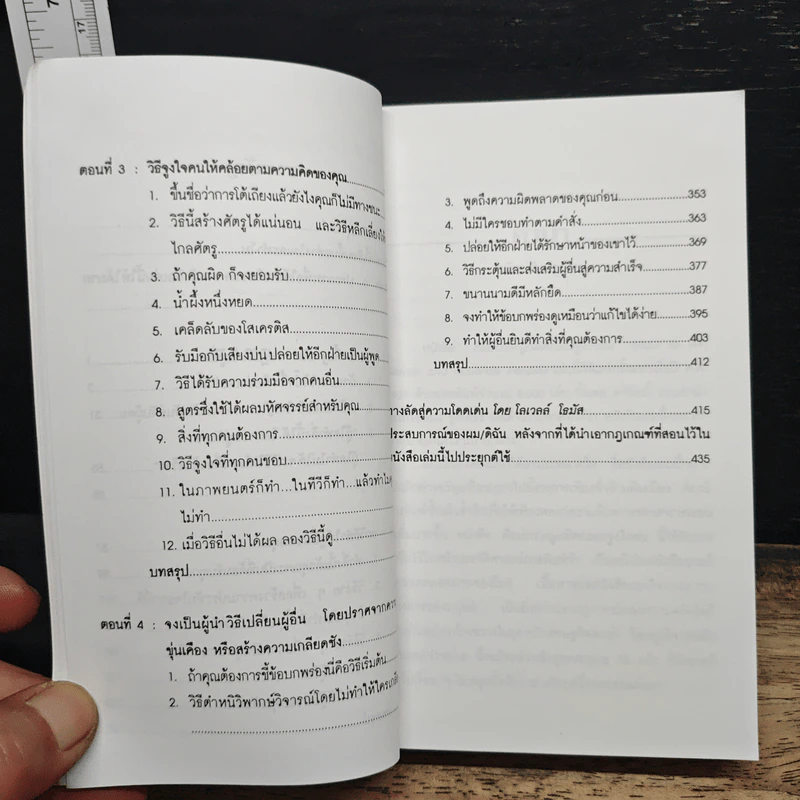 ตอนที่ 3 : วิธีจูงใจคนให้คล้อยตามความคิดของคุณ
1. ขึ้นชื่อว่าการโต้เถียงแล้วยังไงคุณก็ไม่มีทางชนะ
2. วิธีนี้สร้างศัตรูได้แน่นอน และวิธีหลีกเลี่ยงให้
ไกลศัตรู
3. ถ้าคุณผิด ก็จงยอมรับ
4. น้ำผึ้งหนึ่งหยด
5. เคล็ดลับของโสเครติส
6. รับมือกับเสียงบ่น ปล่อยให้อีกฝ่ายเป็นผู้พูด
7. วิธีได้รับความร่วมมือจากคนอื่น
8. สูตรซึ่งใช้ได้ผลมหัศจรรย์สำหรับคุณ
9. สิ่งที่ทุกคนต้องการ
10. วิธีจูงใจที่ทุกคนชอบ
11. ในภาพยนตร์ก็ทำ...ในทีวีก็ทำ...แล้วทำไม
ไม่ทำ
12. เมื่อวิธีอื่นไม่ได้ผล ลองวิธีนี้ดู
บทสรุป
ตอนที่ 4 : จงเป็นผู้นำ วิธีเปลี่ยนผู้อื่น โดยปราศจาก
ขุ่นเคือง หรือสร้างความเกลียดชัง
1. ถ้าคุณต้องการชี้ข้อบกพร่องนี่คือวิธีเริ่มต้น
2. วิธีตำหนิวิพากษ์วิจารณ์โดยไม่ทำให้ใคร
3. พูดถึงความผิดพลาดของคุณก่อน 353
4. ไม่มีใครชอบทำตามคำสั่ง 363
5. ปล่อยให้อีกฝ่ายได้รักษาหน้าของเขาไว้ 369
6. วิธีกระตุ้นและส่งเสริมผู้อื่นสู่ความสำเร็จ 377
7. ขนานนามดีมีหลักยึด 387
8. จงทำให้ข้อบกพร่องดูเหมือนว่าแก้ไขได้ง่าย 395
9. ทำให้ผู้อื่นยินดีทำสิ่งที่คุณต้องการ 403
บทสรุป 412
ทางลัดสู่ความโดดเด่น โดย โลเวลล์ โธมัส 415
ประสบการณ์ของผม/ดิฉัน หลังจากที่ได้นำเอากฎเกณฑ์ที่สอนไว้ใน
หนังสือเล่มนี้ไปประยุกต์ใช้ 435